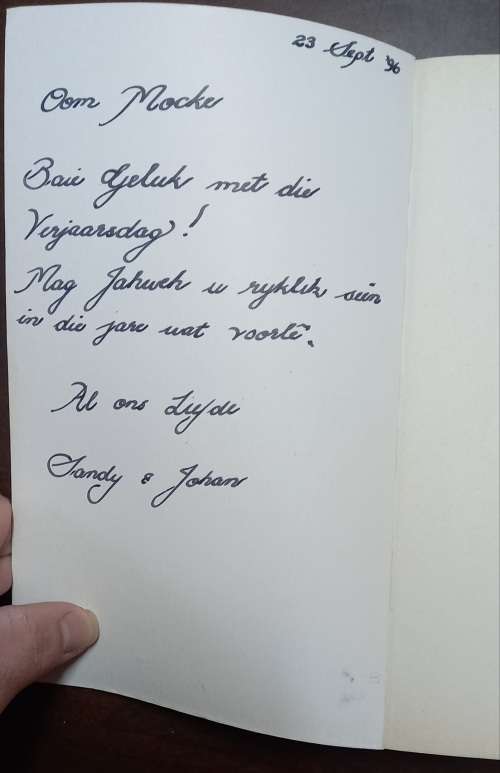 23 Sept '96
Oom Mocke
Baie Geluk met die
Verjaarsdag!
Mag Jahweh u ryklik seën
in die jare wat voorlê.
Al ons Liefde
Sandy & Johan